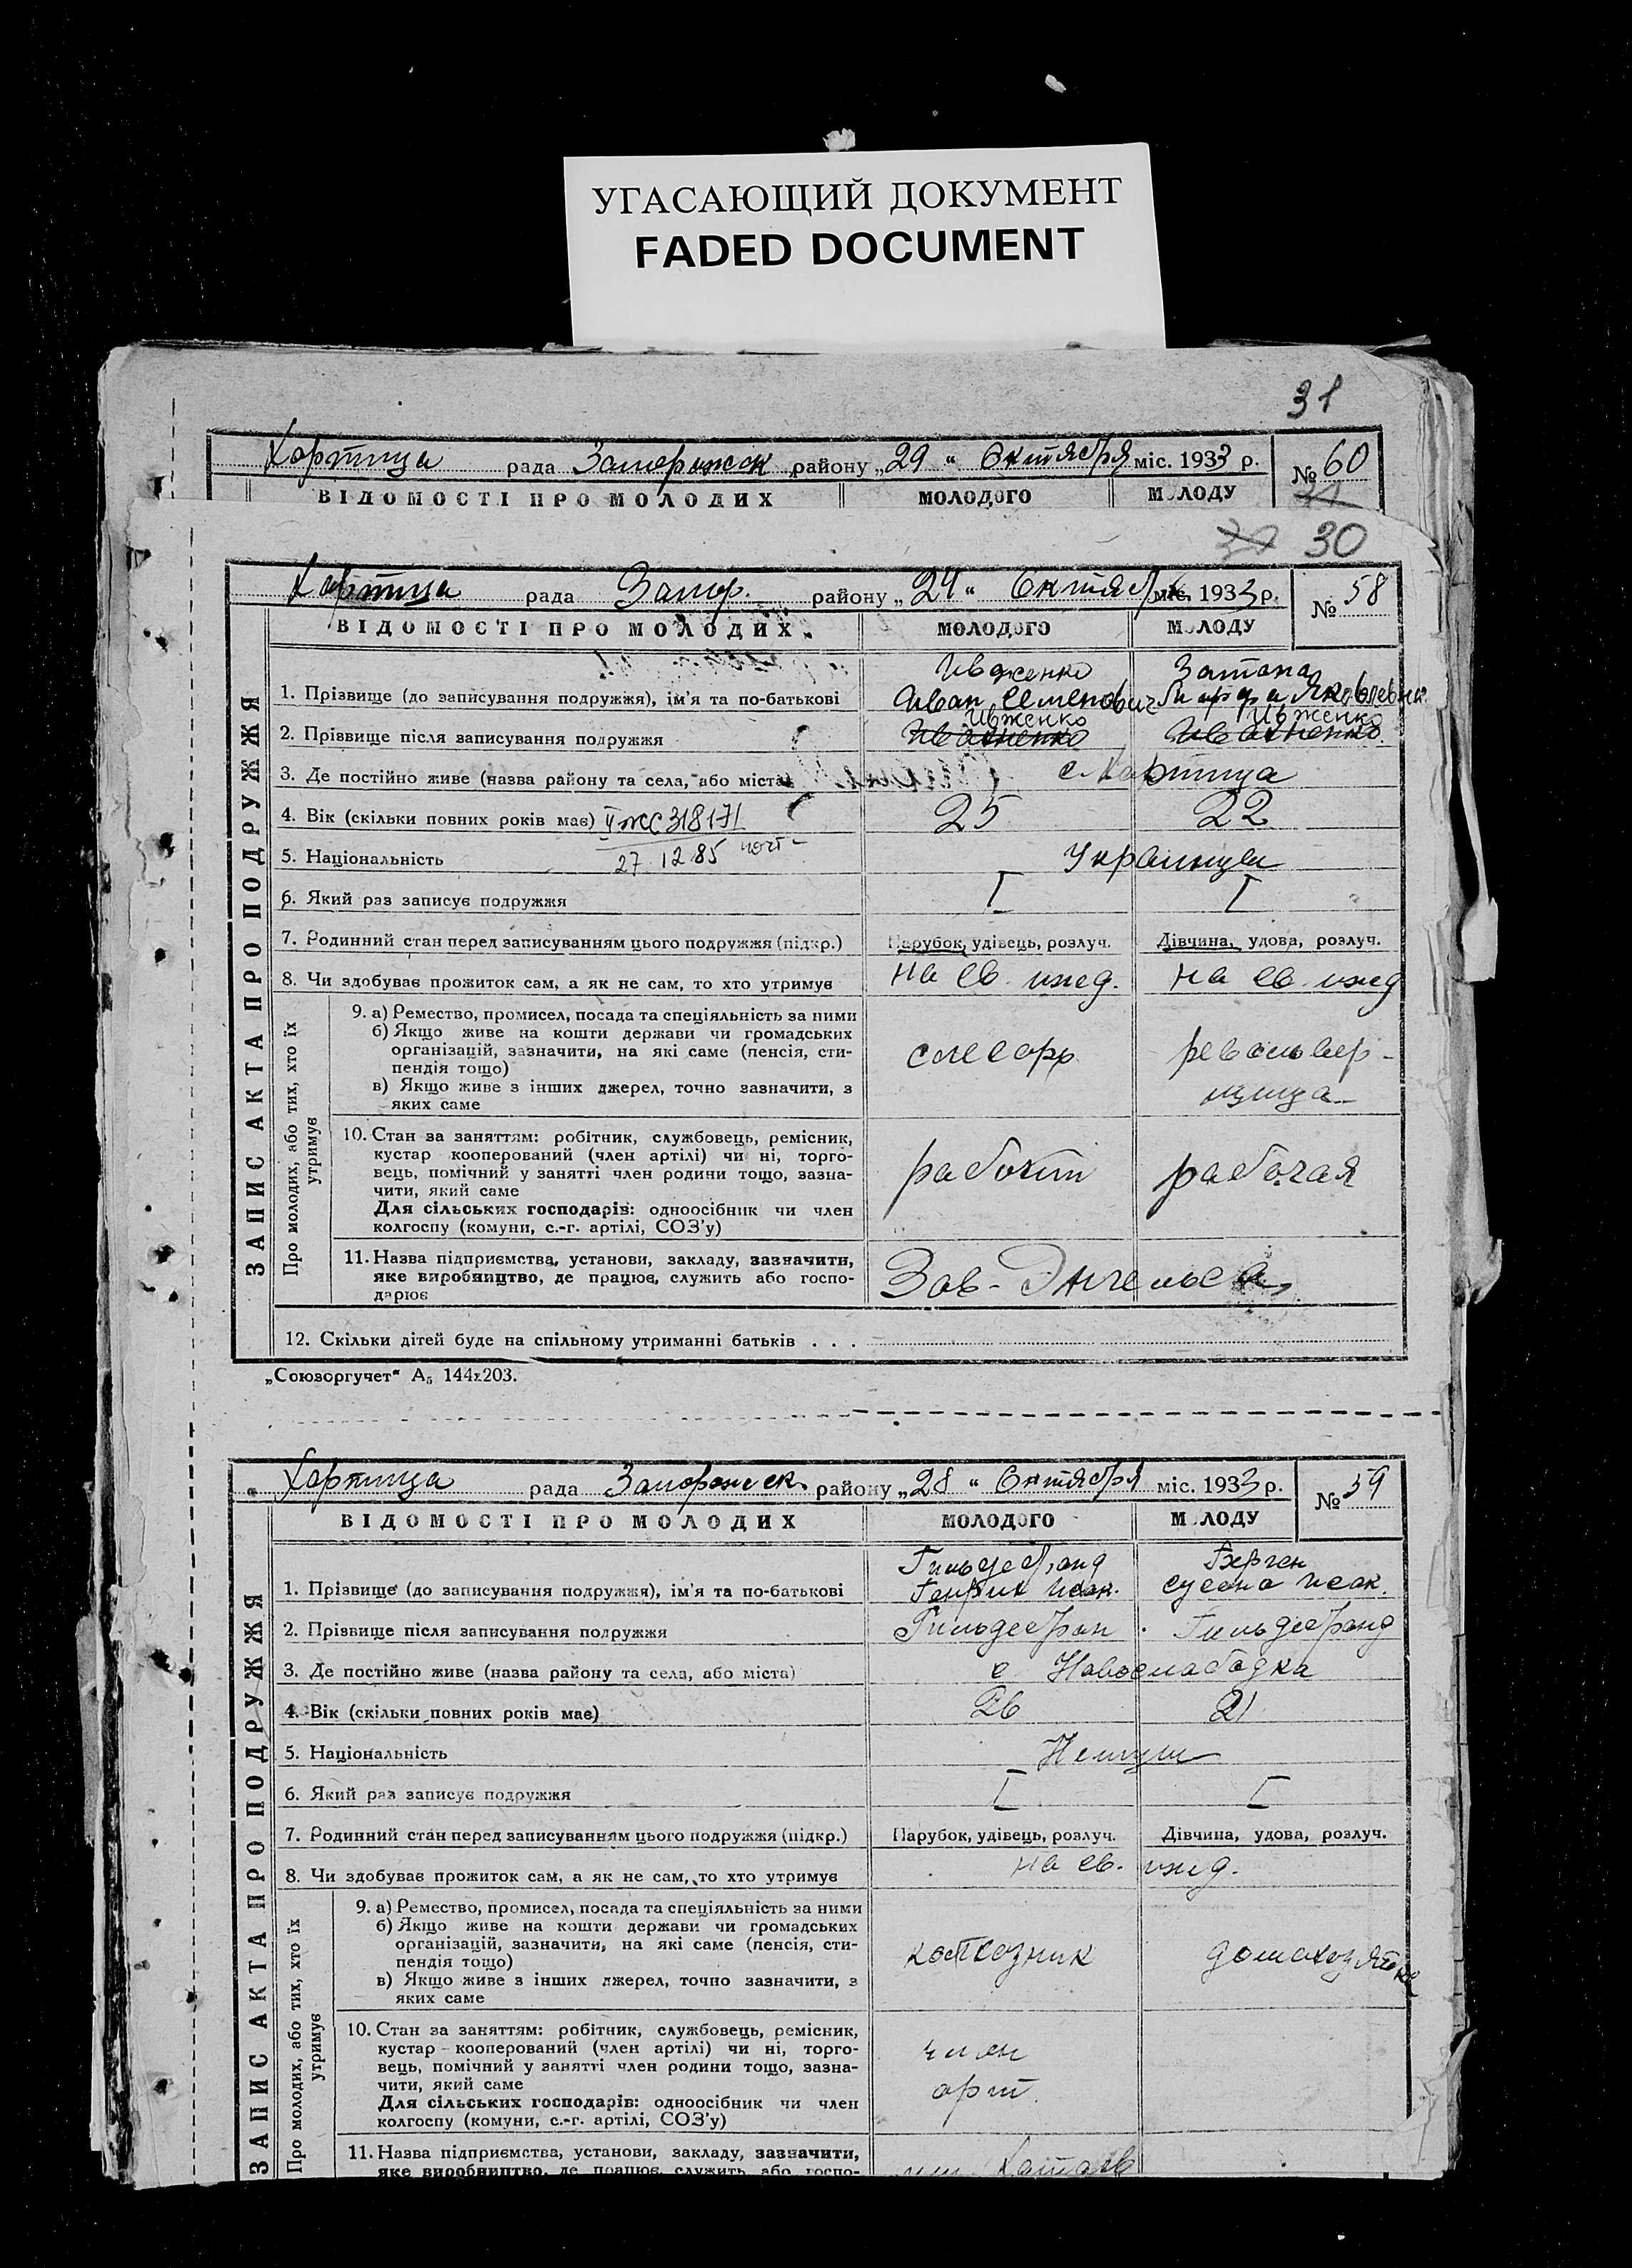 УГАСАЮЩИЙ ДОКУМЕНТ
FADED DOCUMENT
31
Хортица рада Запорожск району „29“ Октября міс. 1933 р. № 60
ВІДОМОСТІ ПРО МОЛОДИХ МОЛОДОГО МОЛОДУ
30
Хортица рада Запор. району „24“ Октября міс. 1933 р. № 58
ВІДОМОСТІ ПРО МОЛОДИХ МОЛОДОГО МОЛОДУ
ЗАПИС АКТА ПРО ПОДРУЖЖЯ
Ивженко
1. Прізвище (до записування подружжя), ім'я та по-батькові Иван Семенович Яковлевна
Ивженко Ивженко
2. Прізвище після записування подружжя Ивахненко Ивахненко
3. Де постійно живе (назва району та села, або міста) с. Хортица
4. Вік (скільки повних років має) II ЖС 318171 25 22
5. Національність 27.12.85 Украинцы
6. Який раз записує подружжя I I
7. Родинний стан перед записуванням цього подружжя (підкр.) Парубок, удівець, розлуч. Дівчина, удова, розлуч.
8. Чи здобуває прожиток сам, а як не сам, то хто утримує на св. ижд. на св. ижд
Про молодих, або тих, хто їх утримує
9. а) Ремество, промисел, посада та спеціяльність за ними
б) Якщо живе на кошти держави чи громадських
організацій, зазначити, на які саме (пенсія, сти-
пендія тощо)
в) Якщо живе з інших джерел, точно зазначити, з
яких саме
слесарь револьвер-
щица
10. Стан за заняттям: робітник, службовець, ремісник,
кустар кооперований (член артілі) чи ні, торго-
вець, помічний у занятті член родини тощо, зазна-
чити, який саме
Для сільських господарів: одноосібник чи член
колгоспу (комуни, с.-г. артілі, СОЗ'у)
рабочий рабочая
11. Назва підприємства, установи, закладу, зазначити,
яке виробництво, де працює, служить або госпо-
дарює
Зав- Энгельса
12. Скільки дітей буде на спільному утриманні батьків . . .
„Союзоргучет“ А5 144х203.
Хортица рада Запорожск. району „28“ Октября міс. 1933 р. № 59
ВІДОМОСТІ ПРО МОЛОДИХ МОЛОДОГО МОЛОДУ
ЗАПИС АКТА ПРО ПОДРУЖЖЯ
Гильдебранд Берген
1. Прізвище (до записування подружжя), ім'я та по-батькові Генрих Исак. Сусана Исак.
2. Прізвище після записування подружжя Гильдебран Гильдебранд
3. Де постійно живе (назва району та села, або міста) с Новослабодка
4. Вік (скільки повних років має) 26 21
5. Національність Немцы
6. Який раз записує подружжя I I
7. Родинний стан перед записуванням цього подружжя (підкр.) Парубок, удівець, розлуч. Дівчина, удова, розлуч.
8. Чи здобуває прожиток сам, а як не сам, то хто утримує на св. ижд.
Про молодих, або тих, хто їх утримує
9. а) Ремество, промисел, посада та спеціяльність за ними
б) Якщо живе на кошти держави чи громадських
організацій, зазначити, на які саме (пенсія, сти-
пендія тощо)
в) Якщо живе з інших джерел, точно зазначити, з
яких саме
колхозник домахозяйка
10. Стан за заняттям: робітник, службовець, ремісник,
кустар кооперований (член артілі) чи ні, торго-
вець, помічний у занятті член родини тощо, зазна-
чити, який саме
Для сільських господарів: одноосібник чи член
колгоспу (комуни, с.-г. артілі, СОЗ'у)
член
арт.
11. Назва підприємства, установи, закладу, зазначити,
яке виробництво, де працює, служить або госпо-